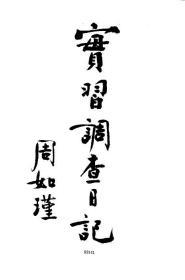 實習調查日記
周如瑾